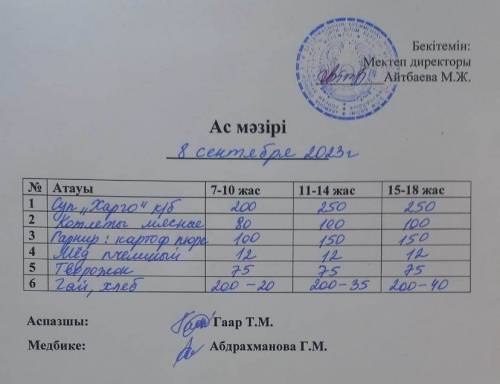 Бекітемін:
Мектеп директоры
Айтбаева М.Ж.
Ас мәзірі
8 сентября 2023г
№ Атауы 7-10 жас 11-14 жас 15-18 жас
1 Суп "Харчо" к/б 200 250 250
2 Котлеты мясные 80 100 100
3 Гарнир: картоф пюре 100 150 150
4 Мёд пчелиный 12 12 12
5 Творожок 75 75 75
6 Чай, хлеб 200-20 200-35 200-40
Аспазшы: Гаар Т.М.
Медбике: Абдрахманова Г.М.